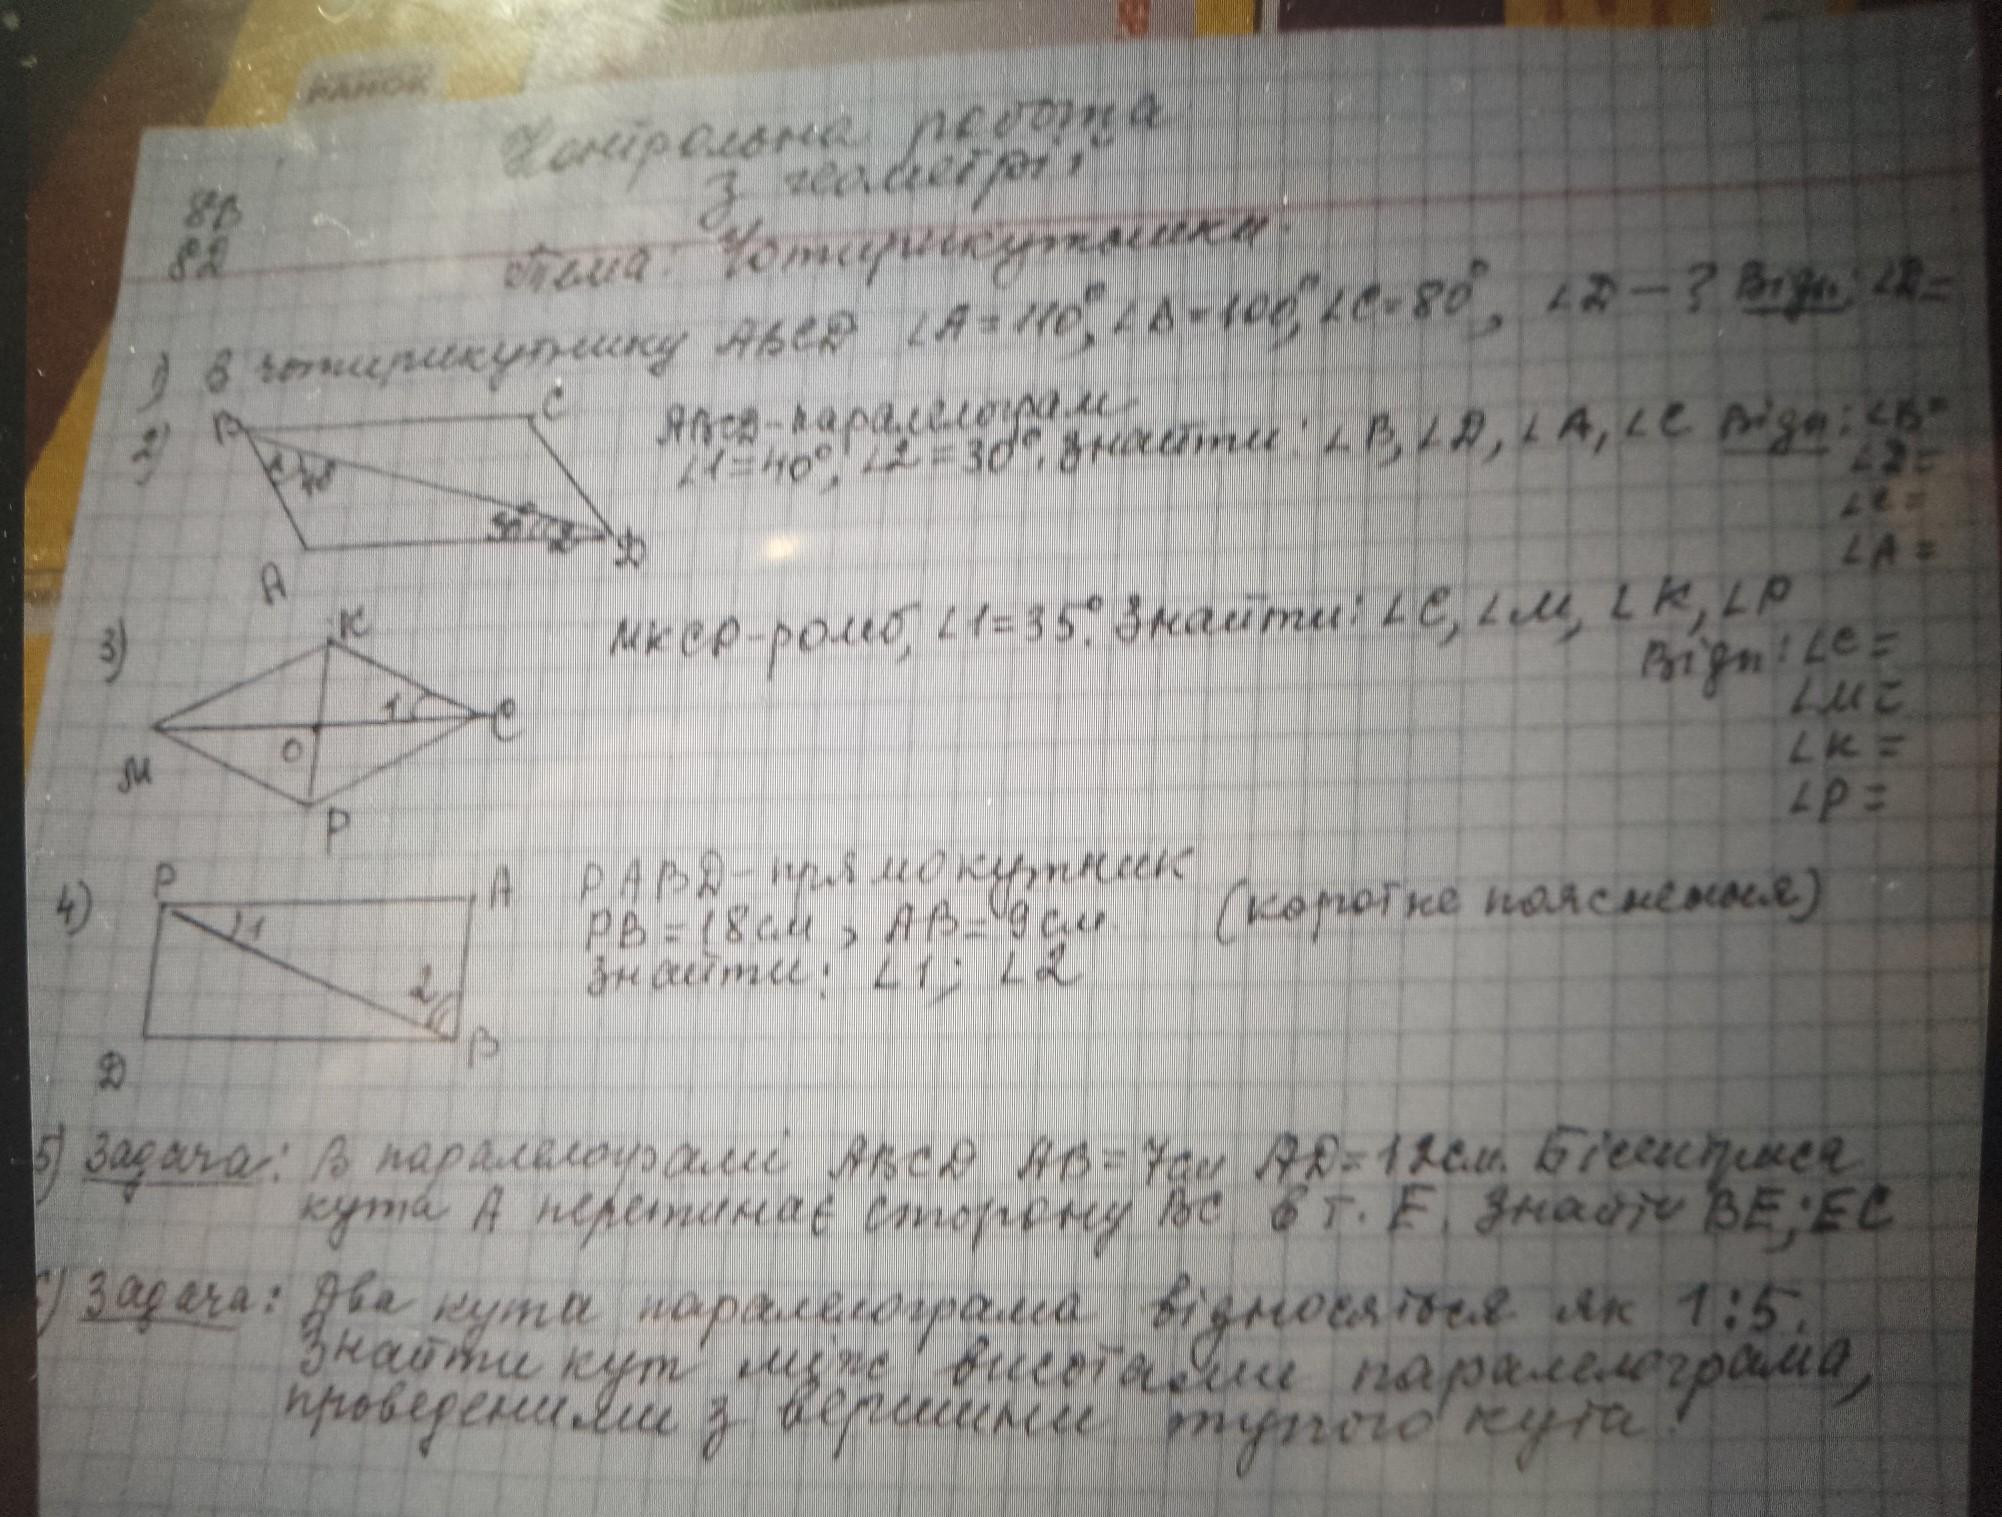 РАНОК
Контрольна робота
з геометрії
8В
82
Тема: Чотирикутники
1) В чотирикутнику ABCD ∠A=110°, ∠B=100°, ∠C=80°, ∠D-? Відп: ∠D=
2) B C
A D
ABCD-паралелограм
∠1=40°, ∠2=30°. Знайти: ∠B, ∠D, ∠A, ∠C Відп: ∠B=
∠D=
∠C=
∠A=
3) K
M O 1 C
P
МКСР-ромб, ∠1=35°. Знайти: ∠C, ∠M, ∠K, ∠P
Відп: ∠C=
∠M=
∠K=
∠P=
4) P A
1
2
D B
PABD-прямокутник
PB=18см, AB=9см (коротке пояснення)
Знайти: ∠1; ∠2
5) Задача: В паралелограмі ABCD AB=7см AD=12см. Бісектриса
кута А перетинає сторону BC в т. E. Знайти BE; EC
) Задача: Два кути паралелограма відносяться як 1:5.
Знайти кут між висотами паралелограма,
проведеними з вершини тупого кута.